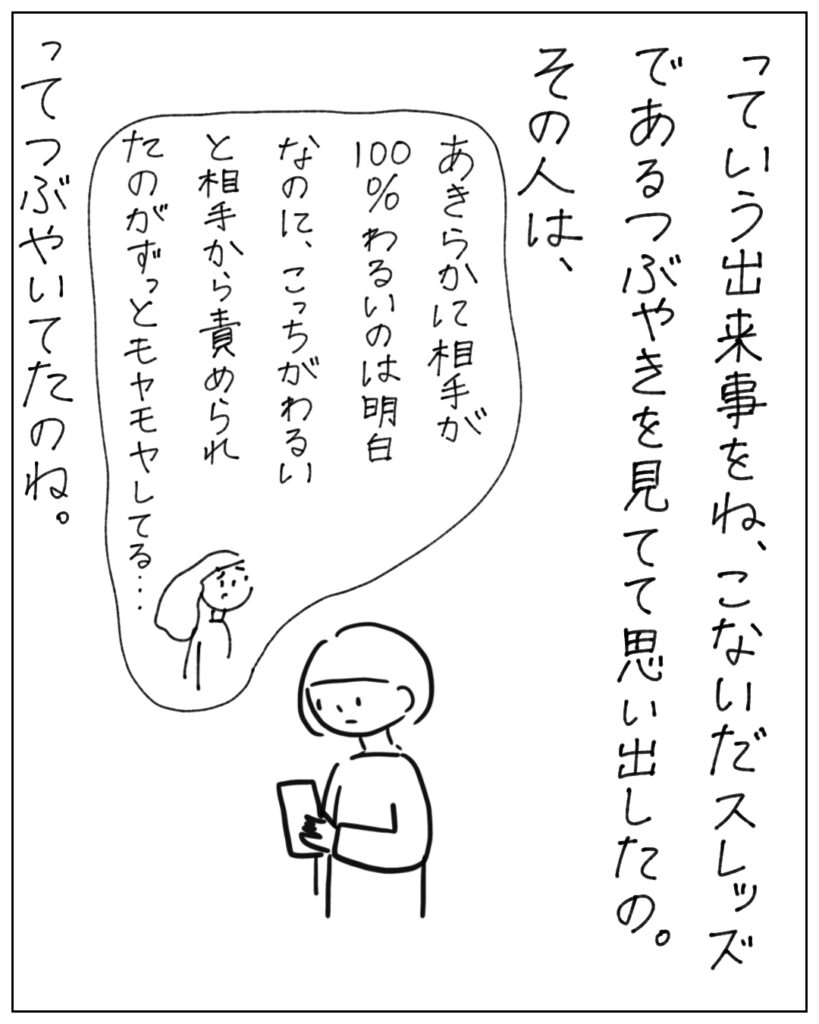 っていう出来事をね、こないだスレッズ
であるつぶやきを見てて思い出したの。
その人は、
あきらかに相手が
100％わるいのは明白
なのに、こっちがわるい
と相手から責められ
たのがずっとモヤモヤしてる…
ってつぶやいてたのね。